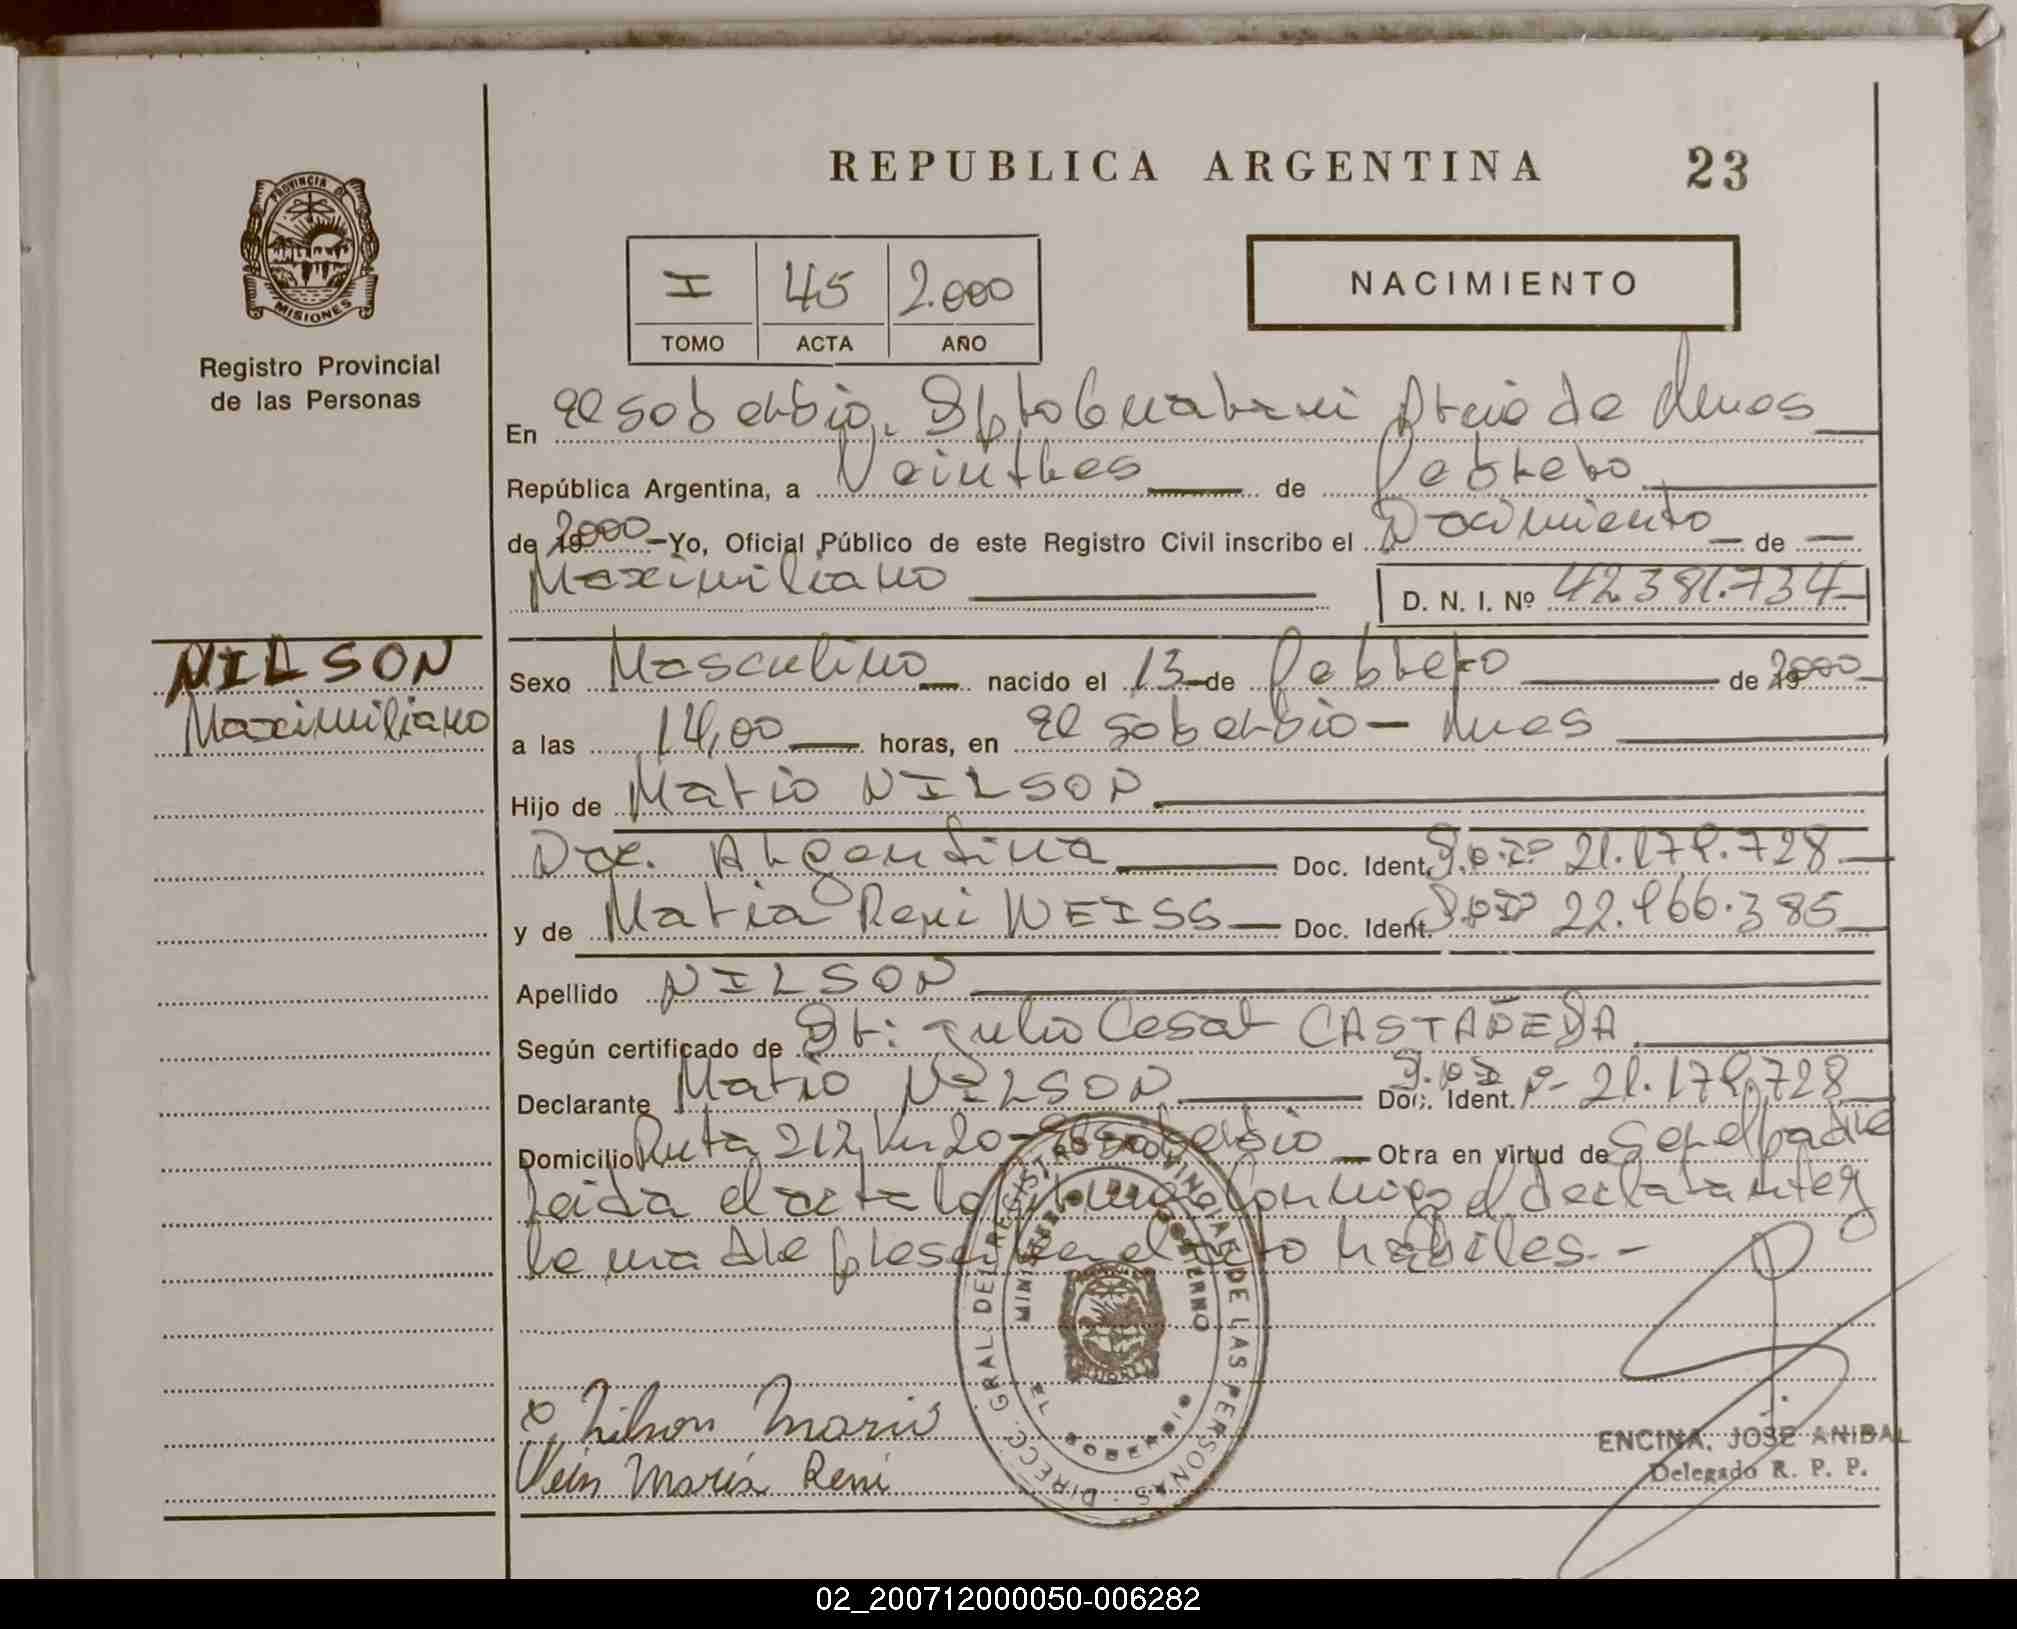 REPUBLICA ARGENTINA 23
PROVINCIA DE MISIONES
Registro Provincial
de las Personas
I 45 2.000
TOMO ACTA AÑO
NACIMIENTO
En El Soberbio, Dpto Guarani Pcia de Mnes
República Argentina, a Veintres de Febrero
de 2000 - Yo, Oficial Público de este Registro Civil inscribo el Nacimiento de
Maximiliano D. N. I. Nº 42.381.734
NILSON
Maximiliano
Sexo Masculino nacido el 13 de Febrero de 2000
a las 14,00 horas, en El Soberbio - Mnes
Hijo de Mario NILSON
Nac. Argentina Doc. Ident. D.N.I. Nº 21.179.728
y de Maria Reni WEISS Doc. Ident. 22.966.385
Apellido NILSON
Según certificado de Dr: Julio Cesar CASTAÑEDA
Declarante Mario NILSON Doc. Ident. Nº 21.179.728
Domicilio Ruta 212 Km 20 - El Soberbio Obra en virtud de ser el padre
Leida el acta la firma conmigo el declarante y
la madre presente en el acto habiles. -
Nilson Mario
Weis María Reni
DIRECC. GRAL. DEL REGISTRO PROVINCIAL DE LAS PERSONAS
MINISTERIO DE GOBIERNO
EL SOBERBIO
ENCINA, JOSE ANIBAL
Delegado R. P. P.
02_200712000050-006282